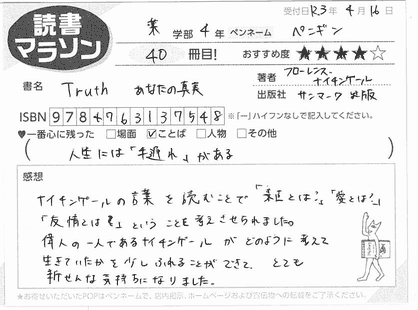 受付日R3年 4月16日
読書マラソン
薬 学部 4年 ペンネーム ペンギン
40 冊目! おすすめ度 ★★★★☆
書名 Truth あなたの真実
著者 フローレンス・ナイチンゲール
出版社 サンマーク出版
ISBN 9784763137548 ※「-」ハイフンなしで記入してください。
♥一番心に残った □場面 ☑ことば □人物 □その他
( 人生には「手遅れ」がある )
感想
ナイチンゲールの言葉を読むことで「とは?」「愛とは?」
「友情とは?」ということを考えさせられました。
偉人の一人であるナイチンゲールがどのように考えて
生きていたかを少しふれることができて、とても
新せんな気持ちになりました。
★お寄せいただいたPOPはペンネームで、店内掲示、ホームページおよび宣伝物への転載をご了承ください。